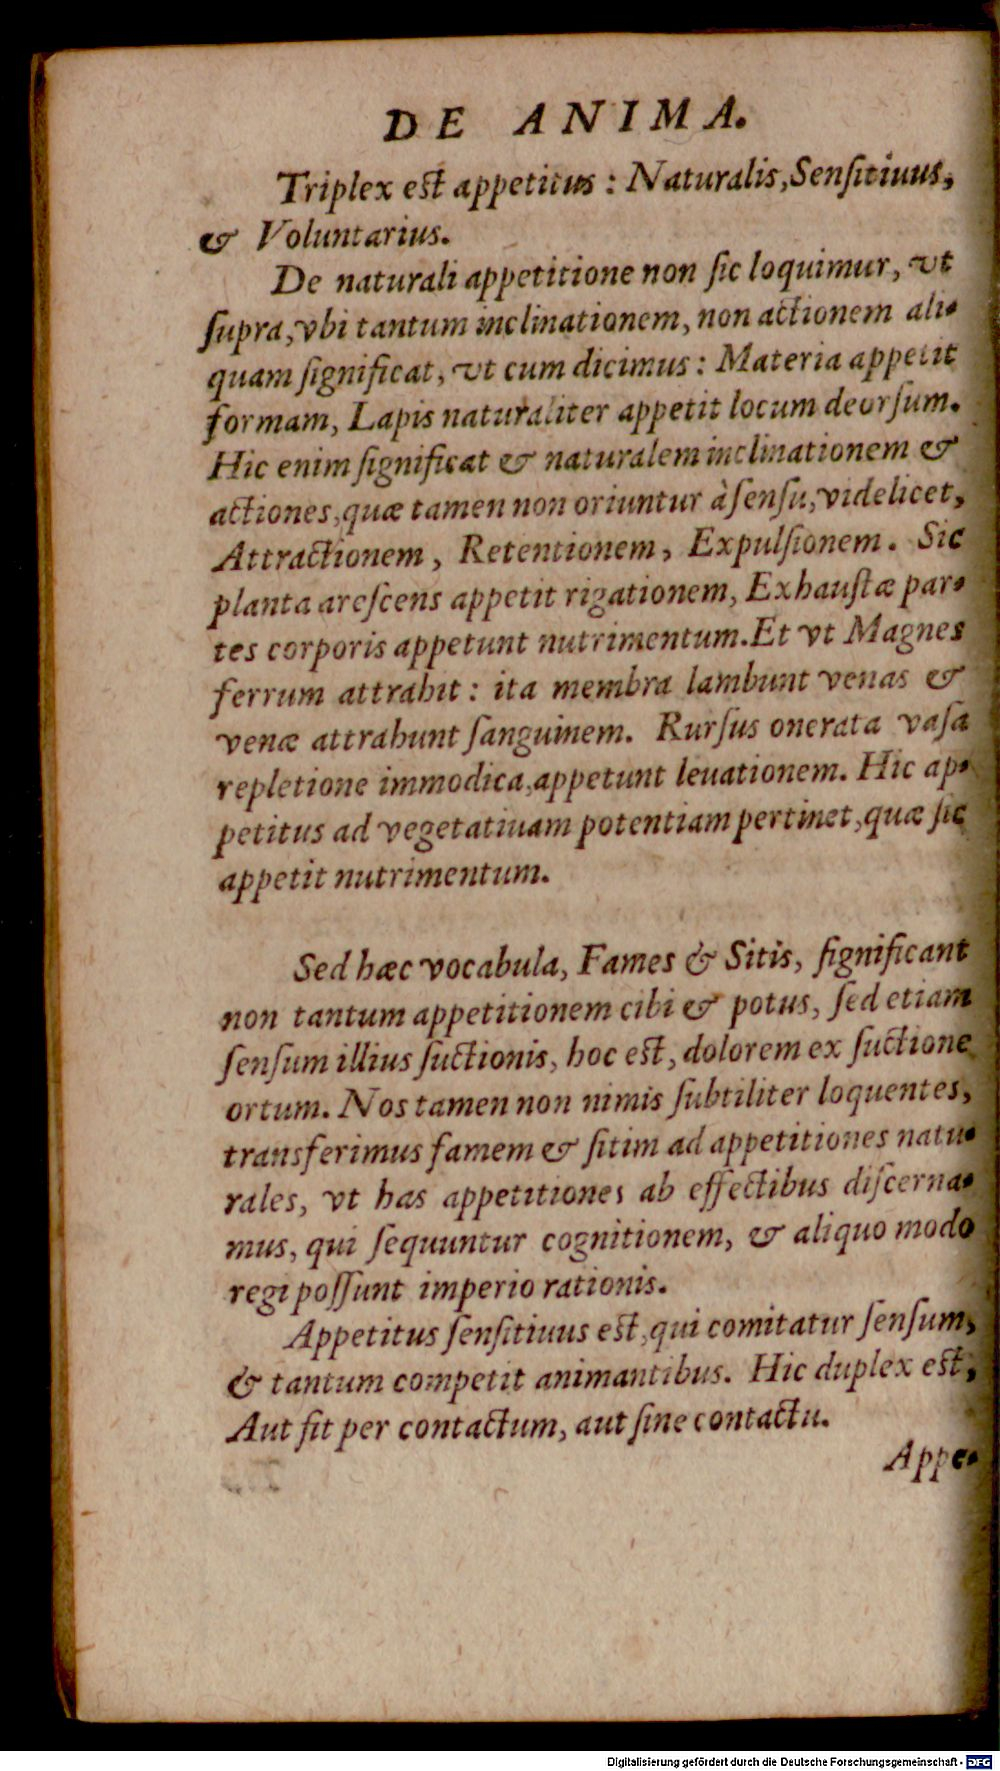 DE ANIMA.
Triplex est appetitus : Naturalis, Senſitiuus,
& Voluntarius.
De naturali appetitione non ſic loquimur, vt
ſupra, vbi tantum inclinationem, non actionem ali-
quam ſignificat, vt cum dicimus : Materia appetit
formam, Lapis naturaliter appetit locum deorſum.
Hic enim ſignificat & naturalem inclinationem &
actiones, quæ tamen non oriuntur à ſenſu, videlicet,
Attractionem, Retentionem, Expulſionem. Sic
planta areſcens appetit rigationem, Exhauſtæ par-
tes corporis appetunt nutrimentum. Et vt Magnes
ferrum attrahit : ita membra lambunt venas &
venæ attrahunt ſanguinem. Rurſus onerata vaſa
repletione immodica, appetunt leuationem. Hic ap-
petitus ad vegetatiuam potentiam pertinet, quæ ſic
appetit nutrimentum.
Sed hæc vocabula, Fames & Sitis, ſignificant
non tantum appetitionem cibi & potus, ſed etiam
ſenſum illius ſuctionis, hoc est, dolorem ex ſuctione
ortum. Nos tamen non nimis ſubtiliter loquentes,
transferimus famem & ſitim ad appetitiones natu-
rales, vt has appetitiones ab effectibus diſcerna-
mus, qui ſequuntur cognitionem, & aliquo modo
regi poſſunt imperio rationis.
Appetitus ſenſitiuus est, qui comitatur ſenſum,
& tantum competit animantibus. Hic duplex est,
Aut fit per contactum, aut ſine contactu.
Appe-
Digitalisierung gefördert durch die Deutsche Forschungsgemeinschaft - DFG